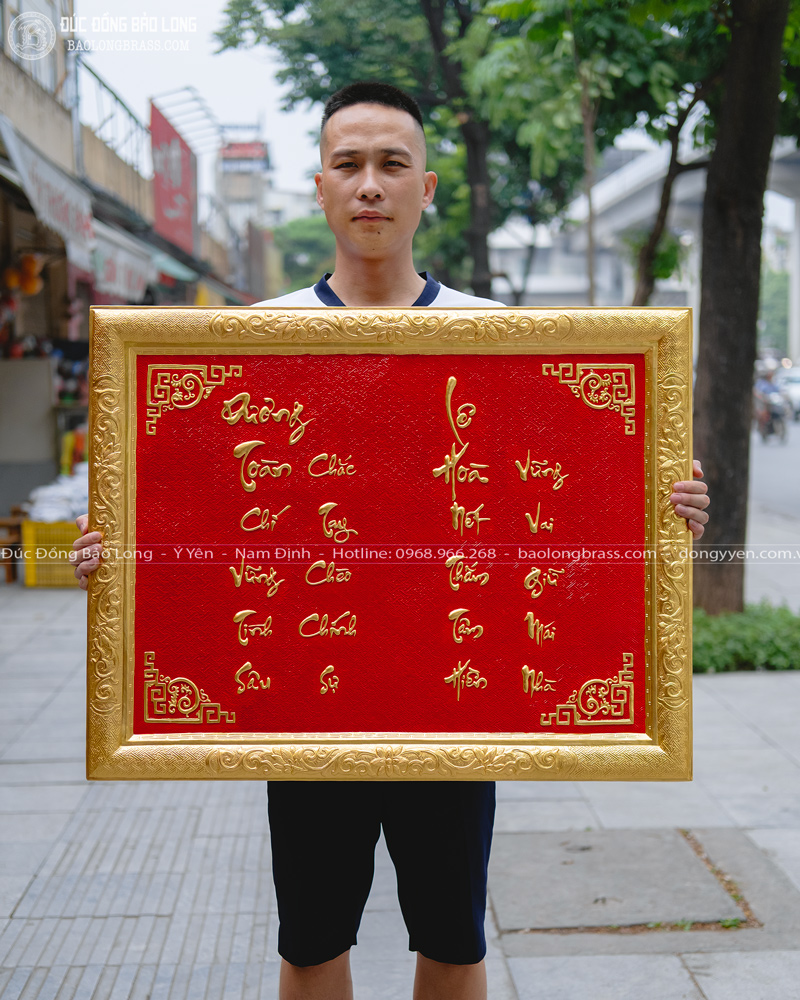 ĐÚC ĐỒNG BẢO LONG
BAOLONGBRASS.COM
Dương Lê
Toàn Chắc Hoà Vững
Chí Tay Nết Vai
Đúc Đồng Bảo Long - Ý Yên - Nam Định - Hotline: 0968.966.268 - baolongbrass.com - dongyyen.com.v
Vững Chèo Thắm Giữ
Tình Chính Tâm Mái
Sâu Sự Hiền Nhà